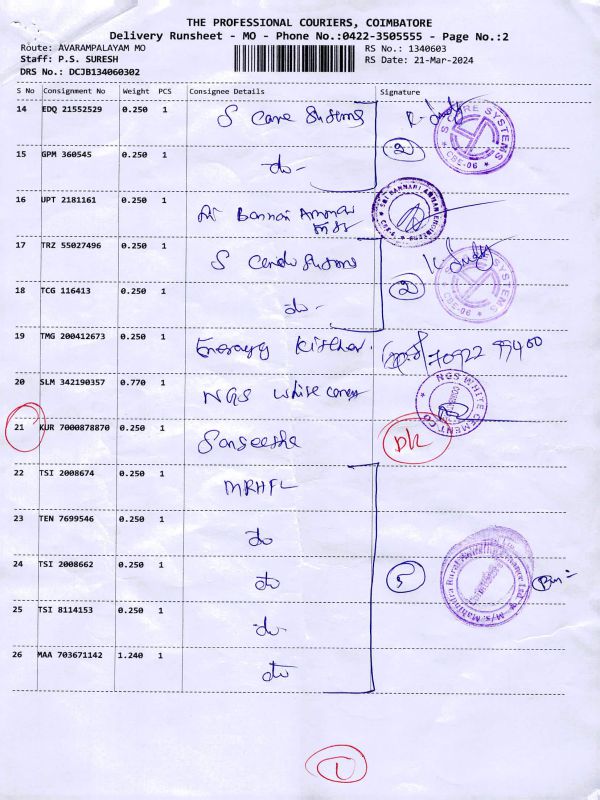 THE PROFESSIONAL COURIERS, COIMBATORE
Delivery Runsheet - MO - Phone No.:0422-3505555 - Page No.:2
Route: AVARAMPALAYAM MO RS No.: 1340603
Staff: P.S. SURESH RS Date: 21-Mar-2024
DRS No.: DCJB134060302
S No Consignment No Weight PCS Consignee Details Signature
14 EDQ 21552529 0.250 1 S Care Systems
S CARE SYSTEMS * CBE-06 *
15 GPM 360545 0.250 1 do- 2
16 UPT 2181161 0.250 1 Sri Bannari Amman
17 TRZ 55027496 0.250 1 S Care Systems
18 TCG 116413 0.250 1 do- 2
CBE-06
19 TMG 200412673 0.250 1 Energy Kitchen. 70922 99400
20 SLM 342190357 0.770 1 NGS white cement
NGS WHITE CEMENT CO
21 KUR 7000878870 0.250 1
22 TSI 2008674 0.250 1 MRHFL
23 TEN 7699546 0.250 1 do
24 TSI 2008662 0.250 1 do 5
M/s. Mahindra Rural Housing Finance Ltd.
25 TSI 8114153 0.250 1 do-
26 MAA 703671142 1.240 1 do
1